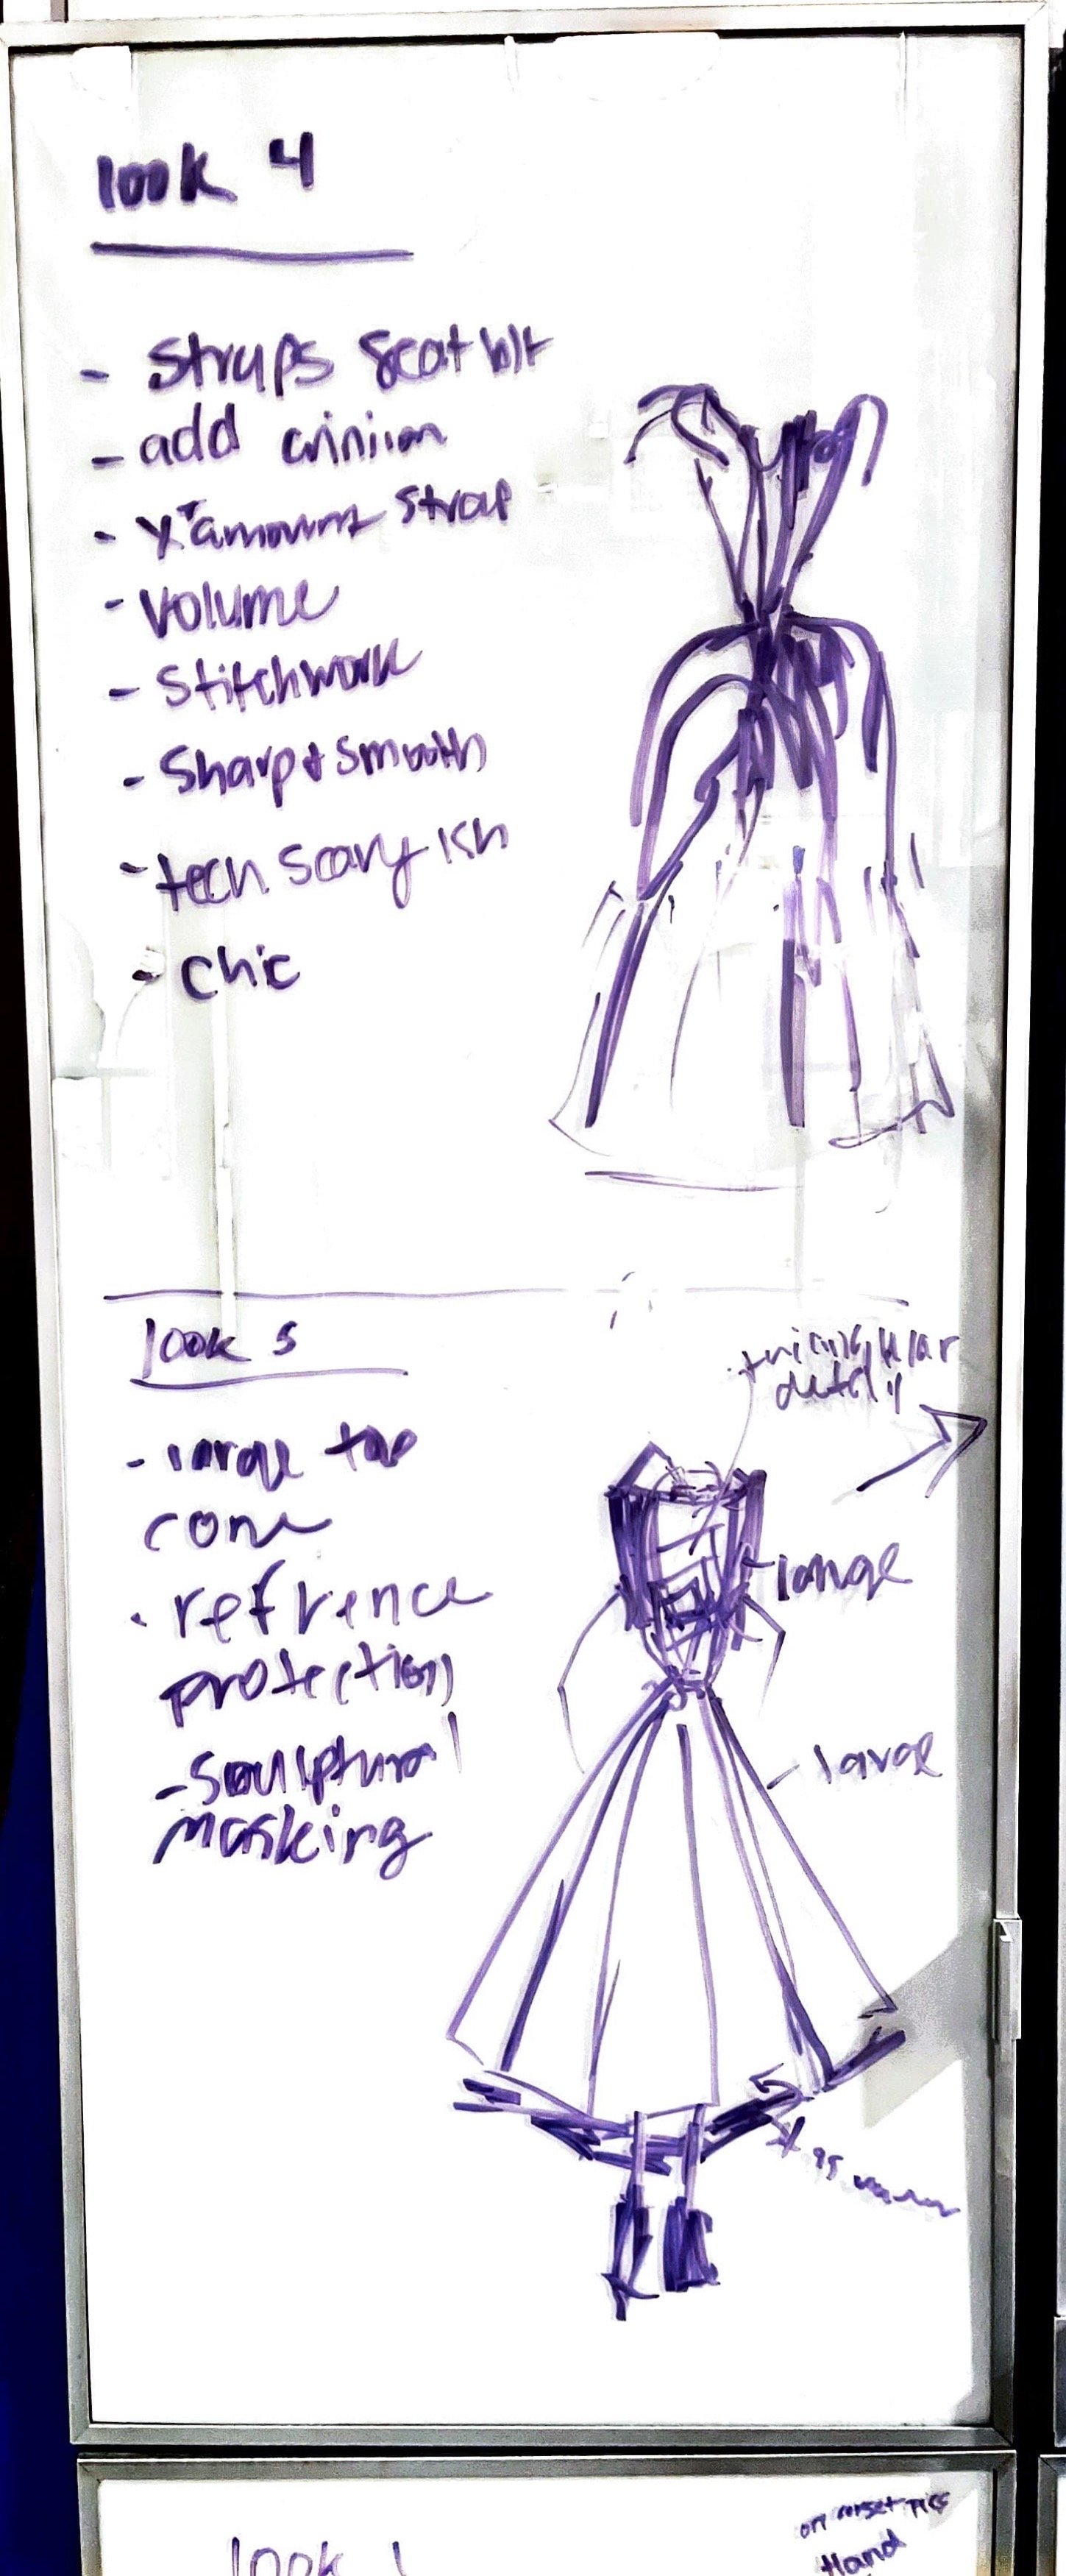 look 4
- Straps Seat blt
- add
- strap
- Volume
- Stitchwork
- Sharp & Smooth
- tech scary ish
- Chic
look 5
- large top
cone
- refrence
protection
- Sculptural
masking
triangular
large
large
look 1
on corset pics
Hand